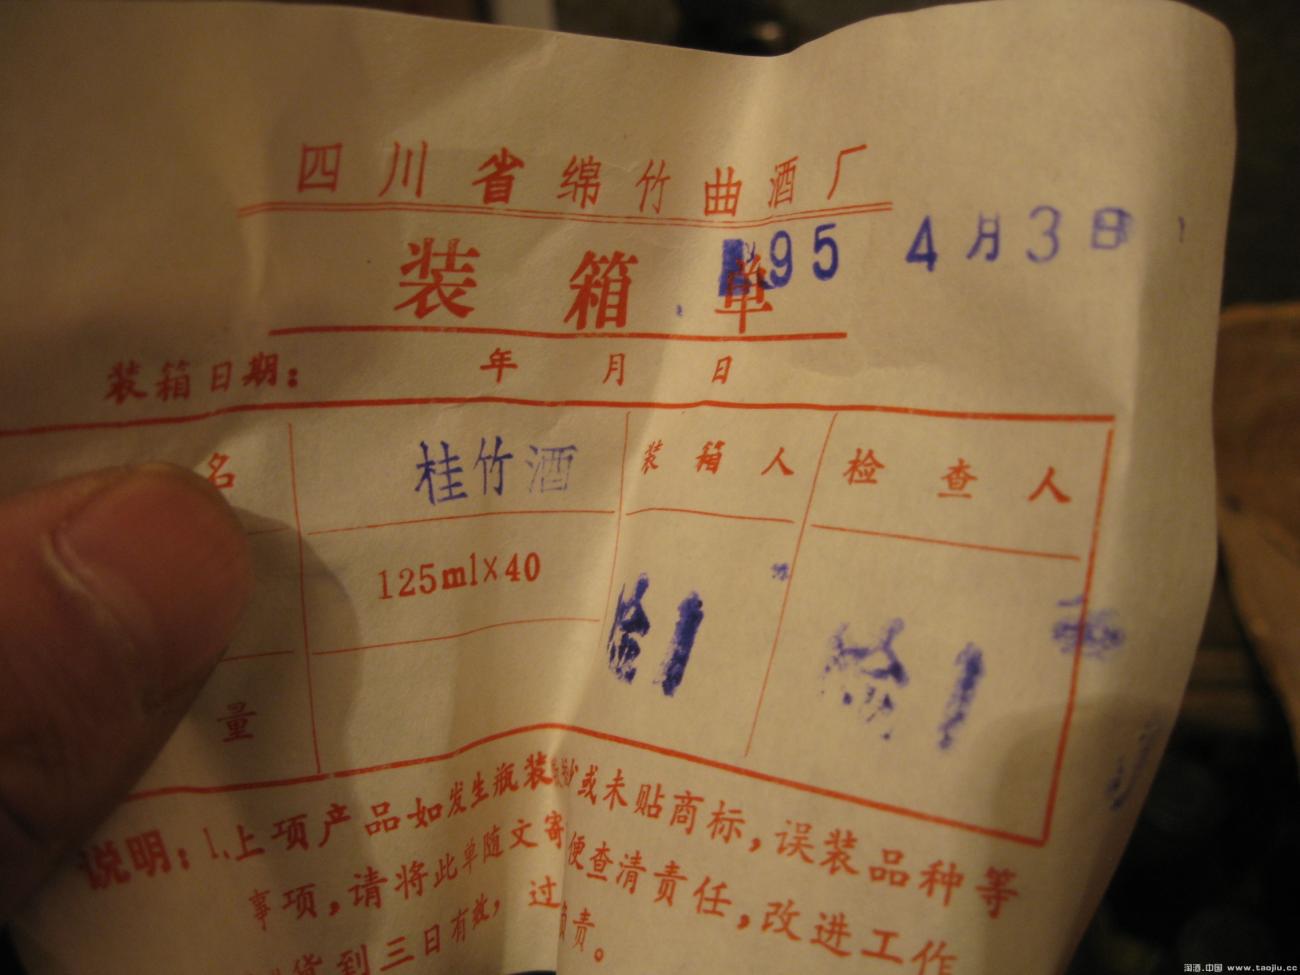 四川省绵竹曲酒厂
装箱单 95 4月3日
装箱日期： 年 月 日
名 桂竹酒 装箱人 检查人
125ml×40
检1 检1
量
说明：1.上项产品如发生瓶装 少或未贴商标，误装品种等
事项，请将此单随文寄 便查清责任，改进工作
货到三日有效，过 负责。
淘酒.中国 www.taojiu.cc